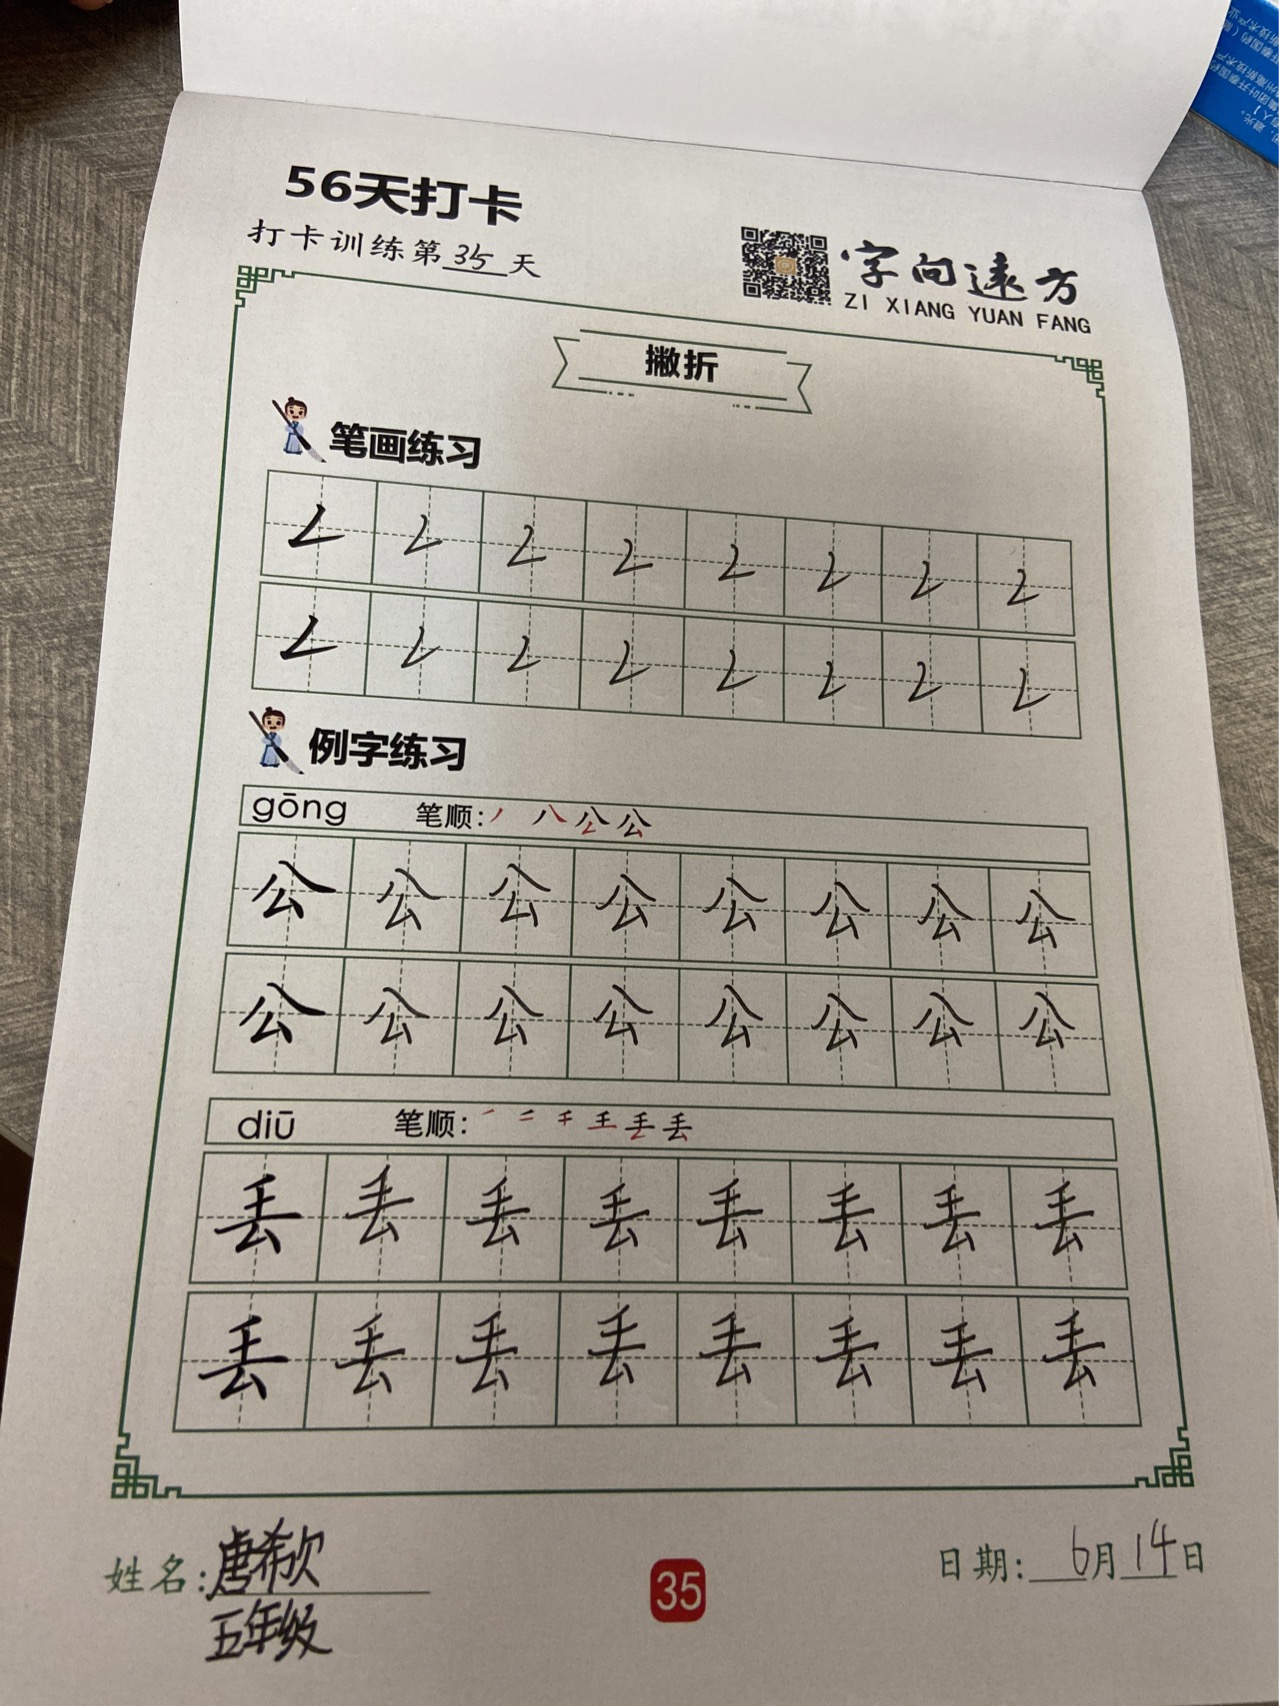 56天打卡
打卡训练第35天
字向远方
ZI XIANG YUAN FANG
撇折
笔画练习
例字练习
gōng 笔顺: 丿 八 公 公
公 公 公 公 公 公 公 公
公 公 公 公 公 公 公 公
diū 笔顺: 丢
丢 丢 丢 丢 丢 丢 丢 丢
丢 丢 丢 丢 丢 丢 丢 丢
姓名: 唐希欠
五年级
35
日期: 6月14日